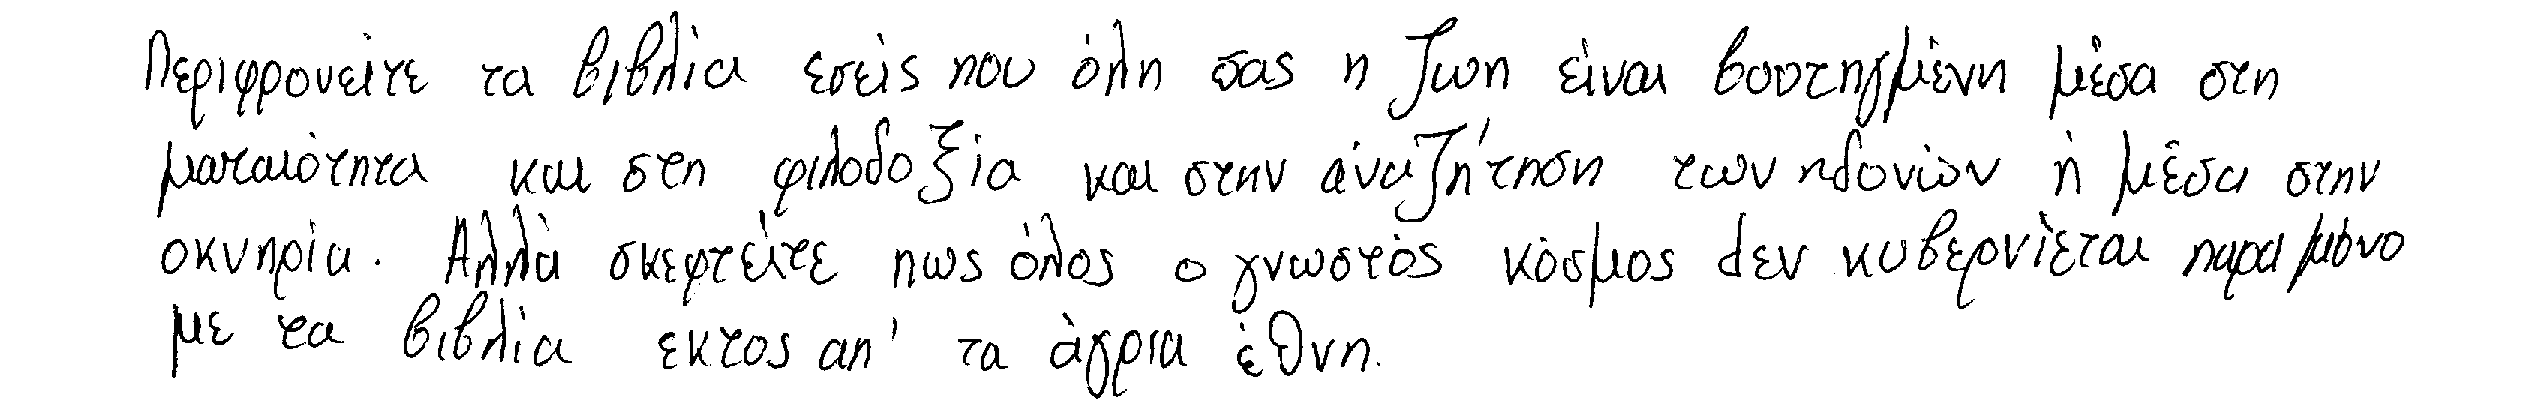 Περιφρονείτε τα βιβλία εσείς που όλη σας η ζωή είναι βουτηγμένη μέσα στη
ματαιότητα και στη φιλοδοξία και στην αναζήτηση των ηδονών ή μέσα στην
οκνηρία. Αλλά σκεφτείτε πως όλος ο γνωστός κόσμος δεν κυβερνιέται παρά μόνο
με τα βιβλία εκτος απ' τα άγρια έθνη.